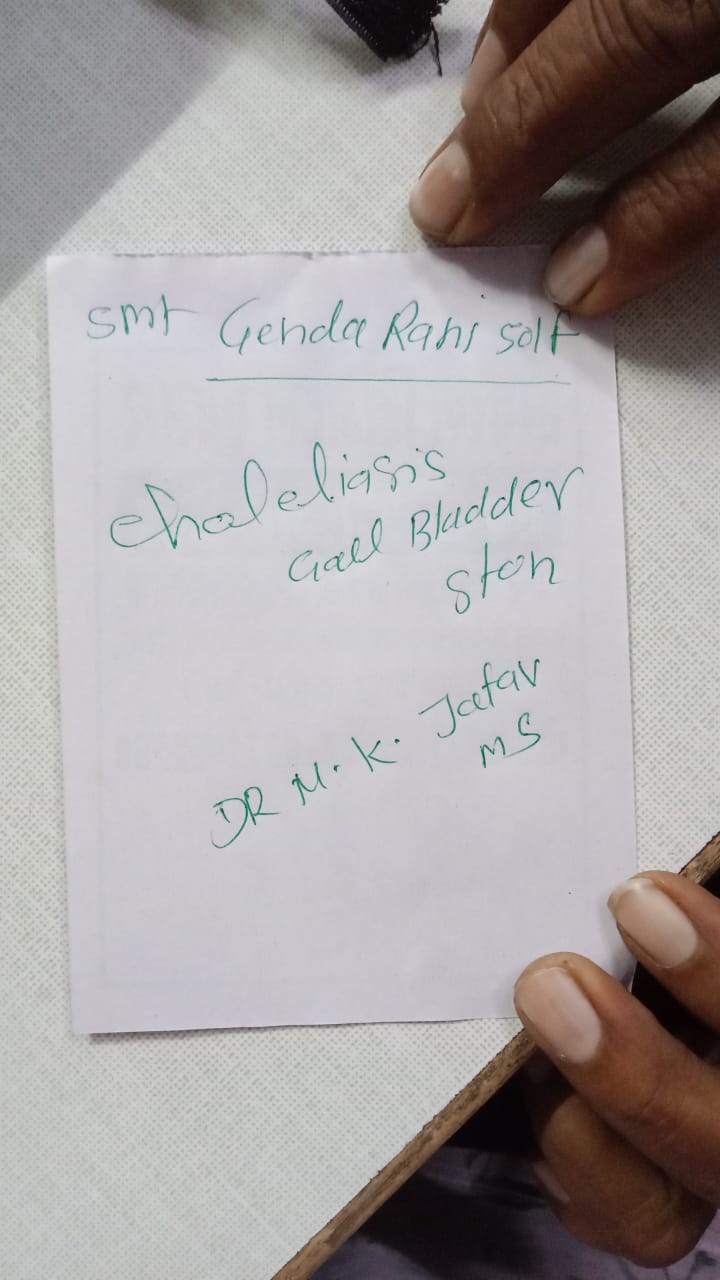 smt Genda Rani self
choleliasis
Gall Bladder
Ston
DR M. K. Jatav
MS